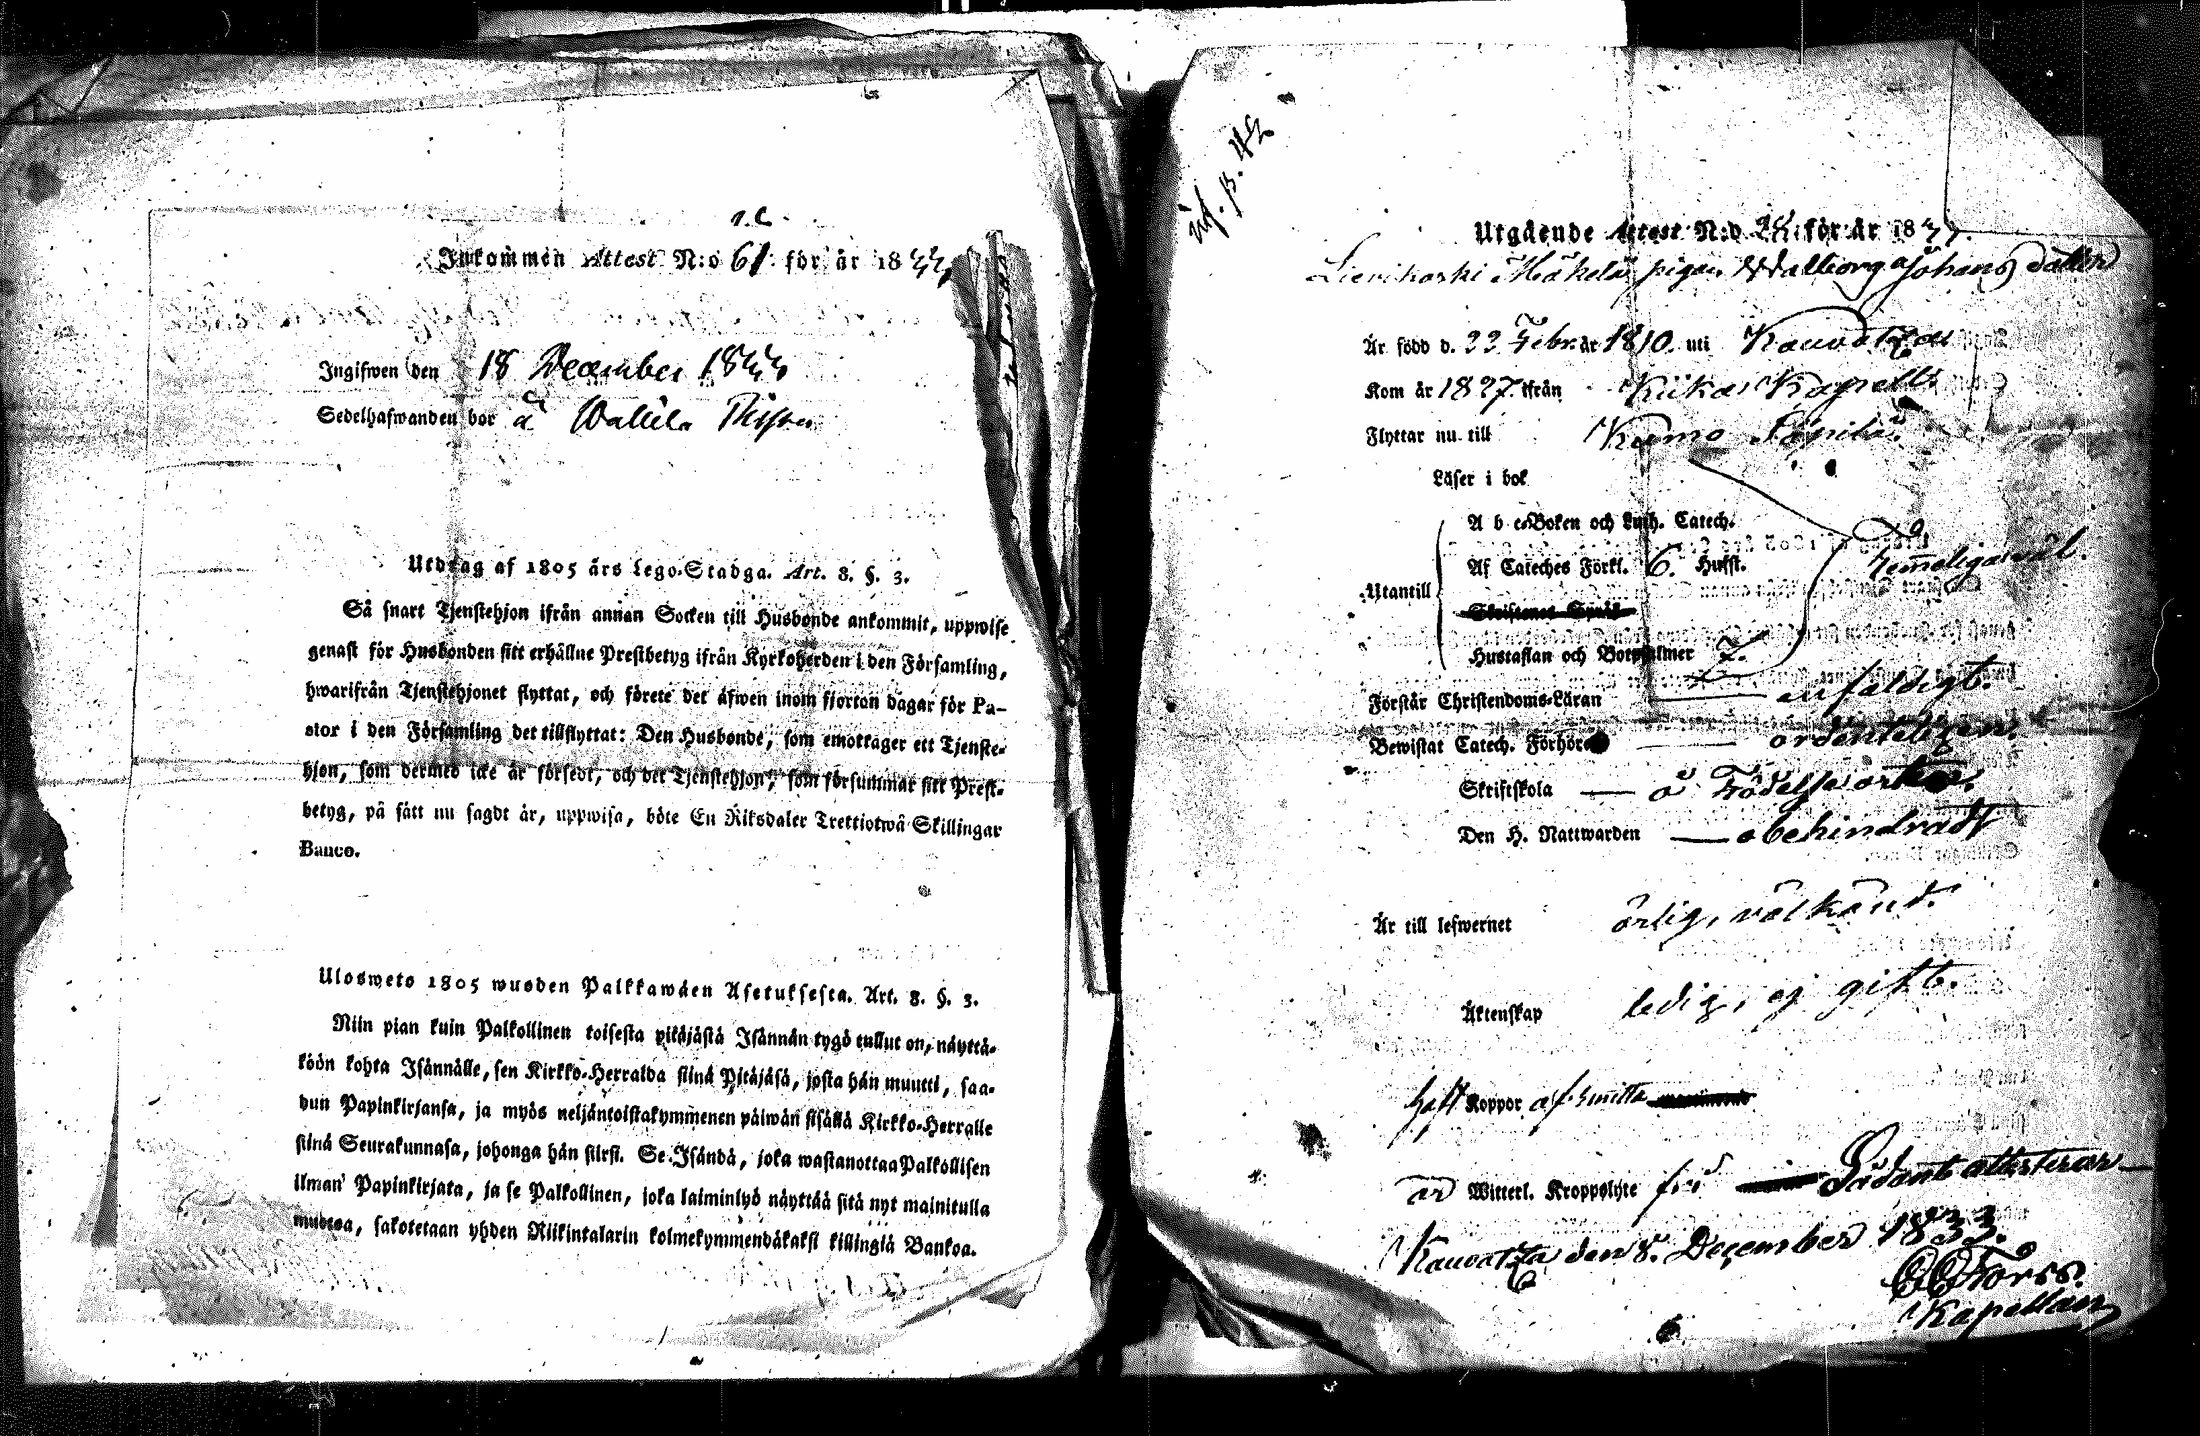 Inkommen Attest N:o 61. för år 1833
Ingifwen den 18 December 1833
Sedelhafwanden bor å Wallila
Utdrag af 1805 års Lego-Stadga. Art. 8. §. 3.
Så snart Tjenstehjon ifrån annan Socken till Husbonde ankommit, uppwise
genast för Husbonden sitt erhållne Prestbetyg ifrån Kyrkoherden i den Församling,
hwarifrån Tjenstehjonet flyttat, och förete det äfwen inom fjorton dagar för Pa-
stor i den Församling det tillflyttat: Den Husbonde, som emottager ett Tjenste-
hjon, som dermed icke är försedt, och det Tjenstehjon, som försummar sitt Prest-
betyg, på sätt nu sagdt är, uppwisa, böte En Riksdaler Trettiotwå Skillingar
Banco.
Ulosweto 1805 wuoden Palkkawäen Asetuksesta. Art. 8. §. 3.
Niin pian kuin Palkollinen toisesta pitäjästä Isännän tygö tullut on, näyttä-
köön kohta Isännälle, sen Kirkko-Herralda siinä Pitäjäsä, josta hän muutti, saa-
dun Papinkirjansa, ja myös neljäntoistakymmenen päiwän sisällä Kirkko-Herralle
siinä Seurakunnasa, johonga hän siirsi. Se Isändä, joka wastanottaa Palkollisen
ilman' Papinkirjata, ja se Palkollinen, joka laiminlyö näyttää sitä nyt mainitulla
muotoa, sakotetaan yhden Riikintalarin kolmekymmendäkaksi killingiä Bankoa.
Utgående Attest N:o för år 1833.
Mäkelä pigan Walborg Johans dotter
Är född d. 22 Febr. år 1810. uti Kauvatza
Kom år 1827. ifrån Kiika Kapell
Flyttar nu till Kumo
Läser i bok
A b c-Boken och Luth. Catech.
Af Cateches Förkl. 6. Husst. temeligen väl.
Utantill
Skriftenes Språk
Hustaflan och Botpsalmer 7.
Förstår Christendoms-Läran enfaldigt.
Bewistat Catech. Förhören ordenteligen.
Skriftskola å Födelse orten.
Den H. Nattwarden obehindradt
Är till lefwernet ärlig, välkänd.
Äktenskap ledig, ej gift.
haft Koppor af smitta
är Witterl. Kroppslyte fri Sådant attesterar
Kauvatza den 8. December 1833.
Forss.
Kapellan